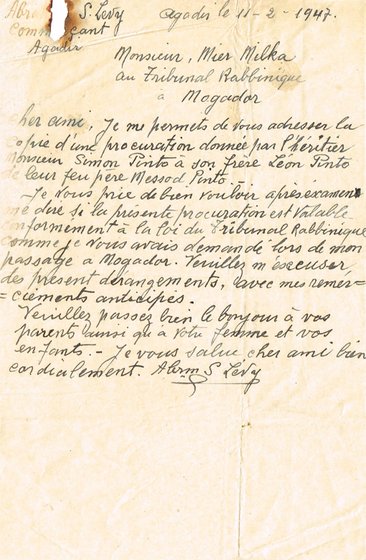 Abr S Levy Agadir le 11-2-1947.
Commerçant
Agadir
Monsieur, Mier Milka
au Tribunal Rabbinique
à
Mogador
Cher ami, Je me permets de vous adresser la
Copie d'une procuration donnée par l'héritier
Monsieur Simon Pinto à son frère Léon Pinto
de leur feu père Messod Pinto.
-Je vous prie de bien vouloir après examen
me dire si la présente procuration est Valable
conformement à la loi du Tribunal Rabbinique
comme je vous avais demandé lors de mon
passage à Mogador. Veuillez m'éxcuser,
des présent dérangements, avec mes remer=
=ciements anticipés.
Veuillez passez bien le bonjour à vos
parents ainsi qu'à votre femme et vos
enfants.- Je vous salue cher ami bien
cordialement. Abrm S Lévy